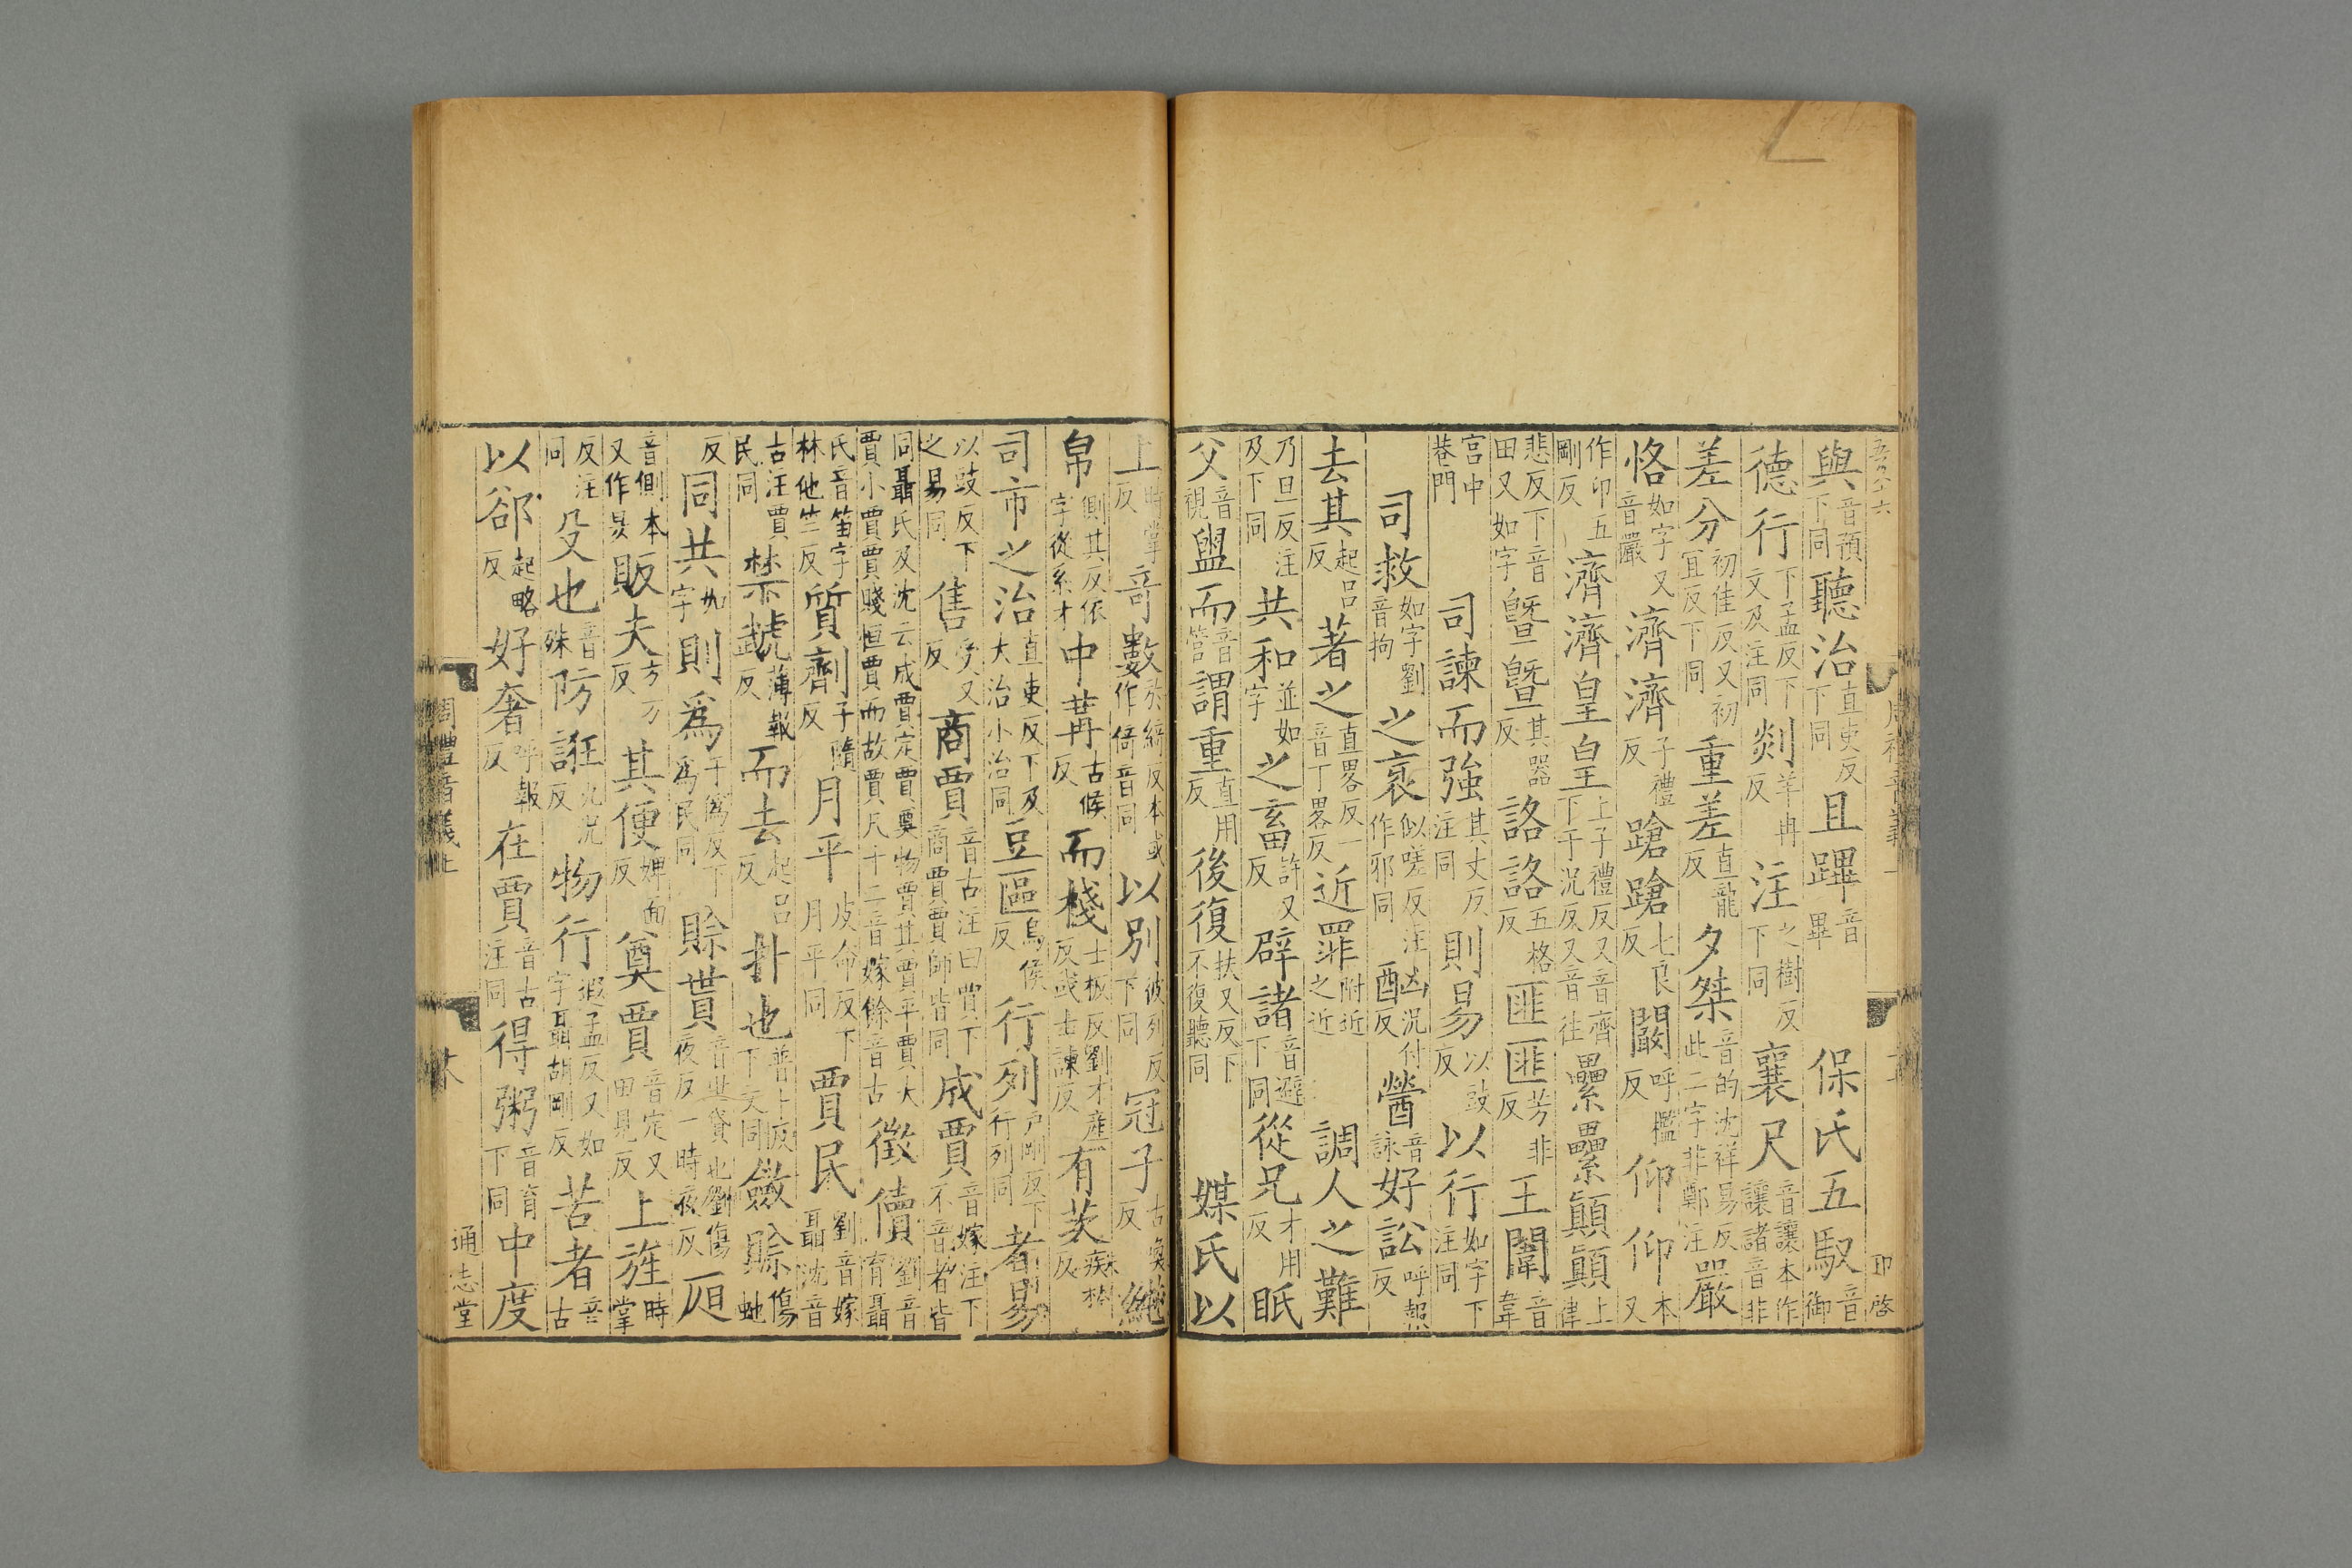 與音預下同聽治直吏反下同且蹕音畢 保氏五馭音御
德行下孟反下文及注同剡羊冉反注之樹反下同襄尺音讓本作讓諸音非
差分初佳反又初宜反下同重差直龍反夕桀音的沈祥易反此二字非鄭注嚴
恪如字又音嚴濟濟子禮反蹌蹌七良反闞呼檻反仰仰本又
作卬五剛反濟濟皇皇上子禮反又音齊下于況反又音往纍纍顚顚上律
悲反下音田又如字曁曁其器反詻詻五格反匪匪芳非反王闈音韋
宮中巷門 司諫而強其丈反注同則易以豉反以行如字下注同
司救如字劉音拘之衺似嗟反注作邪同酗況付反醟音詠好訟呼報反
去其起呂反著之直畧反一音丁畧反近罪附近之近 調人之難
乃旦反注及下同共和並如字之畜許又反辟諸音避下同從兄才用反眂
父音視盥而音管謂重直用反後復扶又反下不復聽同 媒氏以
上時掌反竒數於綺反本或作倚音同以別彼列反下同冠子古奐反純
帛側其反依字從糸才中冓古候反而棧士板反劉才產反或士諫反有茨疾私反
司市之治直吏反下及大治小治同豆區烏侯反行列戶剛反下行列同者易
以豉反下之易同售受又反商賈音古注曰賈下商賈賈師皆同成賈音嫁注下不音者皆
同聶氏及沈云成賈定賈奠物賈其賈平賈大賈小賈賈賤恒賈而故賈凡十二音嫁餘音古徵儥劉音育聶
氏音笛字林他竺反質劑子隨反月平皮命反下月平同賈民劉音嫁聶沈音
古注賈民同禁虣薄報反而去起呂反扑也普卜反下文同斂賒傷蛇
反同共如字則爲于僞反下爲民同賒貰音世貸也劉傷夜反一時夜反𠨘
音側本又作昃販夫方万反其便婢面反奠賈音定又田見反上旌時掌
反注同歿也音殊防誑九況反物行遐孟反又如字聶胡剛反苦者音古
以郤起略反好奢呼報反在賈音古注同得粥音育下同中度
周禮音義上
通志堂
印啓